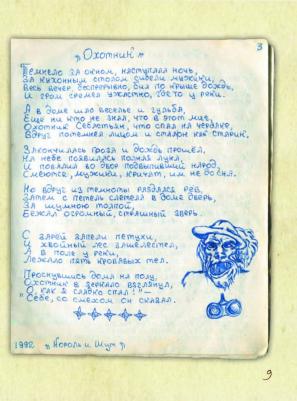 „Охотник"
3
Темнело за окном, наступала ночь,
За кухонным столом сидели мужики,
Весь вечер, беспрерывно, бил по крыше дождь,
И гром гремел ужастно, где-то у реки.
А в доме шло веселье и гульба,
Ещё ни кто не знал, что в этот миг,
Охотник Себастьян, что спал на чердаке,
Вдруг потемнел лицом и стал старик.
Закончилась гроза и дождь прошёл,
На небе появилась полная луна,
И повалил во двор подвыпивший народ,
Смеются, мужики, кричат, им не до сна.
Но вдруг из темноты раздался рёв,
Затем с петель слетела в доме дверь,
За шумною толпой,
Бежал огромный, страшный зверь.
С зарёй запели петухи,
И хвойный лес зашелестел,
А в поле у реки,
Лежало пять кровавых тел.
Проснувшись дома на полу,
Охотник в зеркало взглянул,
"О, как я сладко спал!"–
Себе, со смехом он сказал.
1992 „Король и Шут"
9